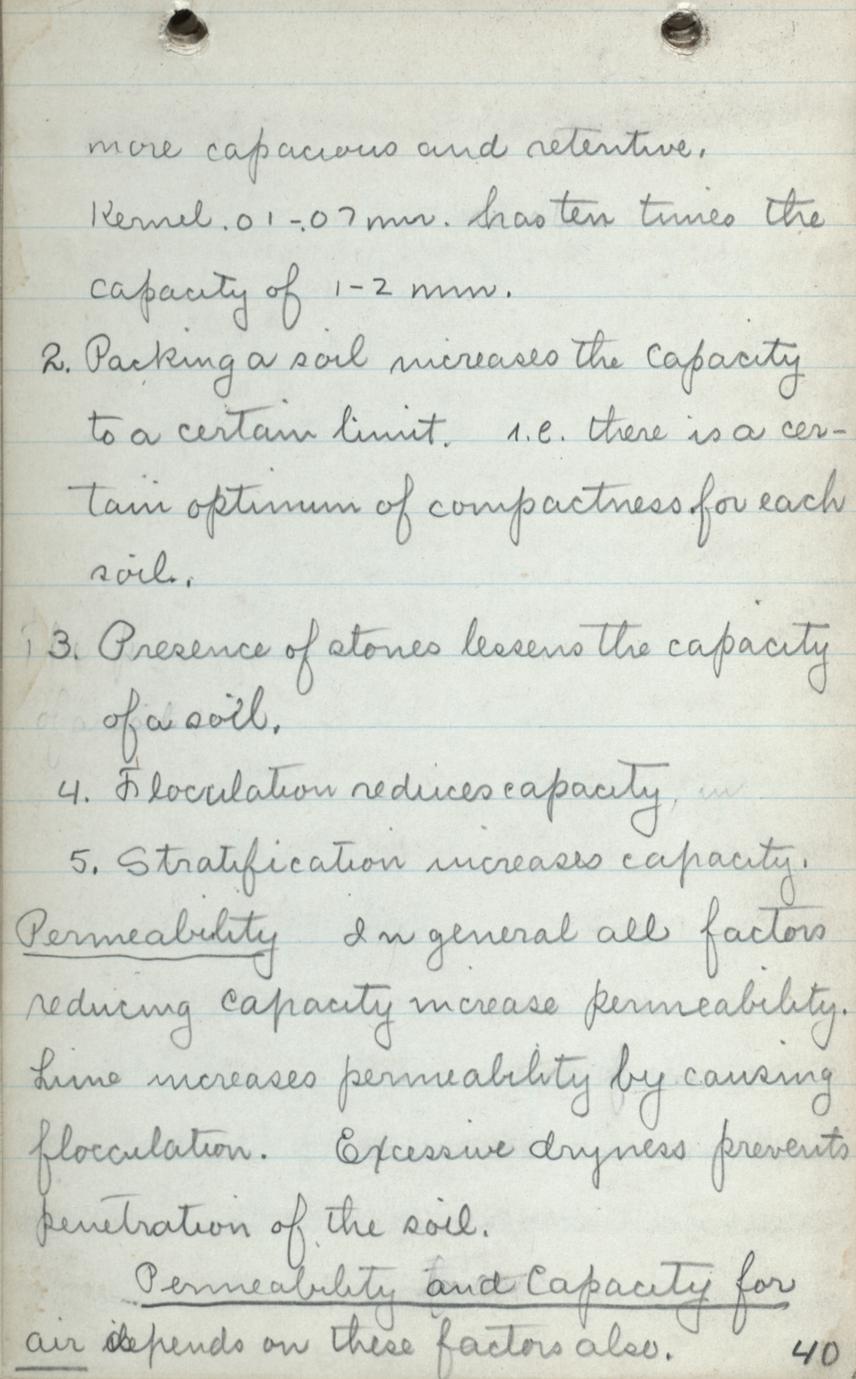 more capacious and retentive.
Kernel .01-.07 mm. has ten times the
capacity of 1-2 mm.
2. Packing a soil increases the capacity
to a certain limit. i.e. there is a cer-
tain optimum of compactness for each
soil.
3. Presence of stones lessens the capacity
of a soil.
4. Flocculation reduces capacity,
5. Stratification increases capacity.
Permeability In general all factors
reducing capacity increase permeability.
Lime increases permeability by causing
flocculation. Excessive dryness prevents
penetration of the soil.
Permeability and Capacity for
air depends on these factors also. 40